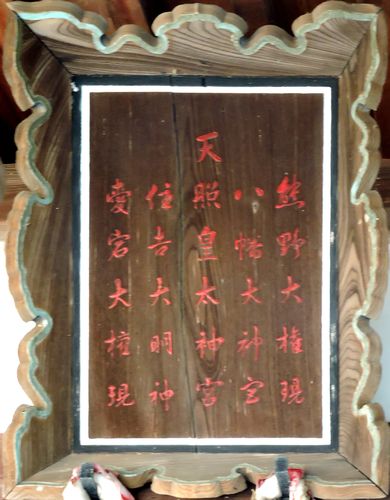 熊野大権現
八幡大神宮
天照皇太神宮
住吉大明神
愛宕大権現